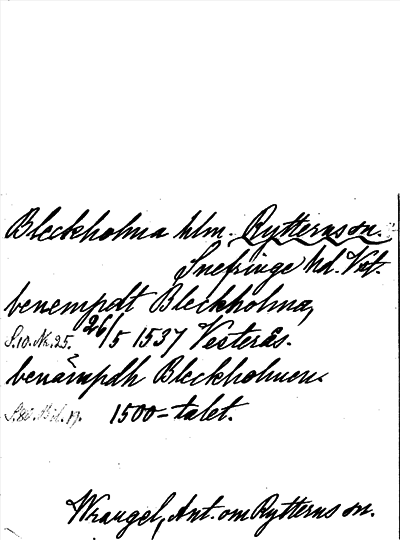 Bleckholma hlm. Rytterns sn.
Snefringe hd. Vst.
benempdt Bleckholma,
S.10. Nr. 25. 26/5 1537 Vesterås.
benämpdh Bleckholmen
1500-talet.
Wrangel, Ant. om Rytterns sn.